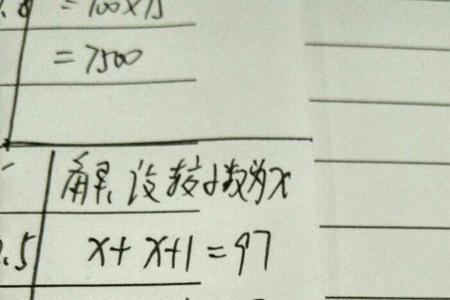 .8 = 100×15
= 7500
解、设较小数为x
.5 x+x+1=97